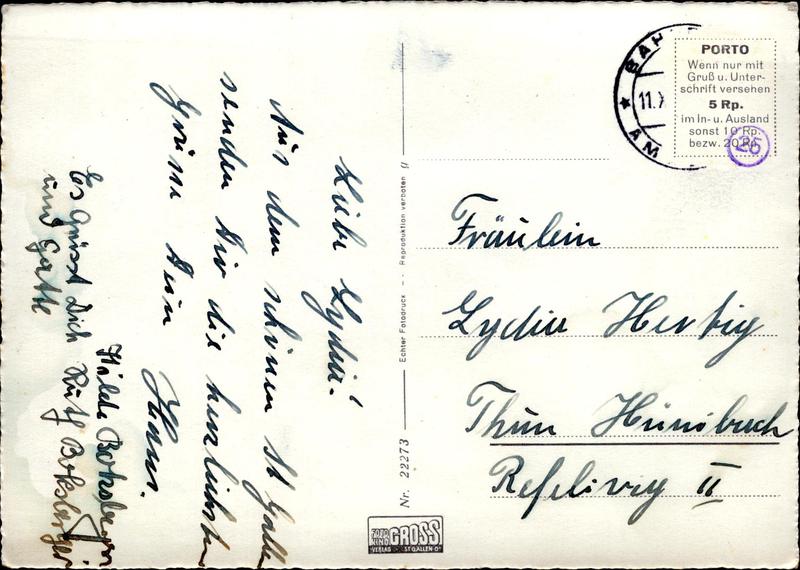 Liebe Lydia!
Aus dem schönen St Gallen
senden Dir die herzlichsten
Grüsse Dein
Hans.
Hilde Boksberger
Es Grüsst Dich Ruth Boksberger
und Gatte
Echter Fotodruck -- Reproduktion verboten
Nr. 22273
FOTO
GROSS
VERLAG ST GALLEN
BAH
11.X
AM
PORTO
Wenn nur mit
Gruß u. Unter-
schrift versehen
5 Rp.
im In- u. Ausland
sonst 10 Rp.
bezw. 20 Rp.
26
Fräulein
Lydia Hertig
Thun Hünibach
II